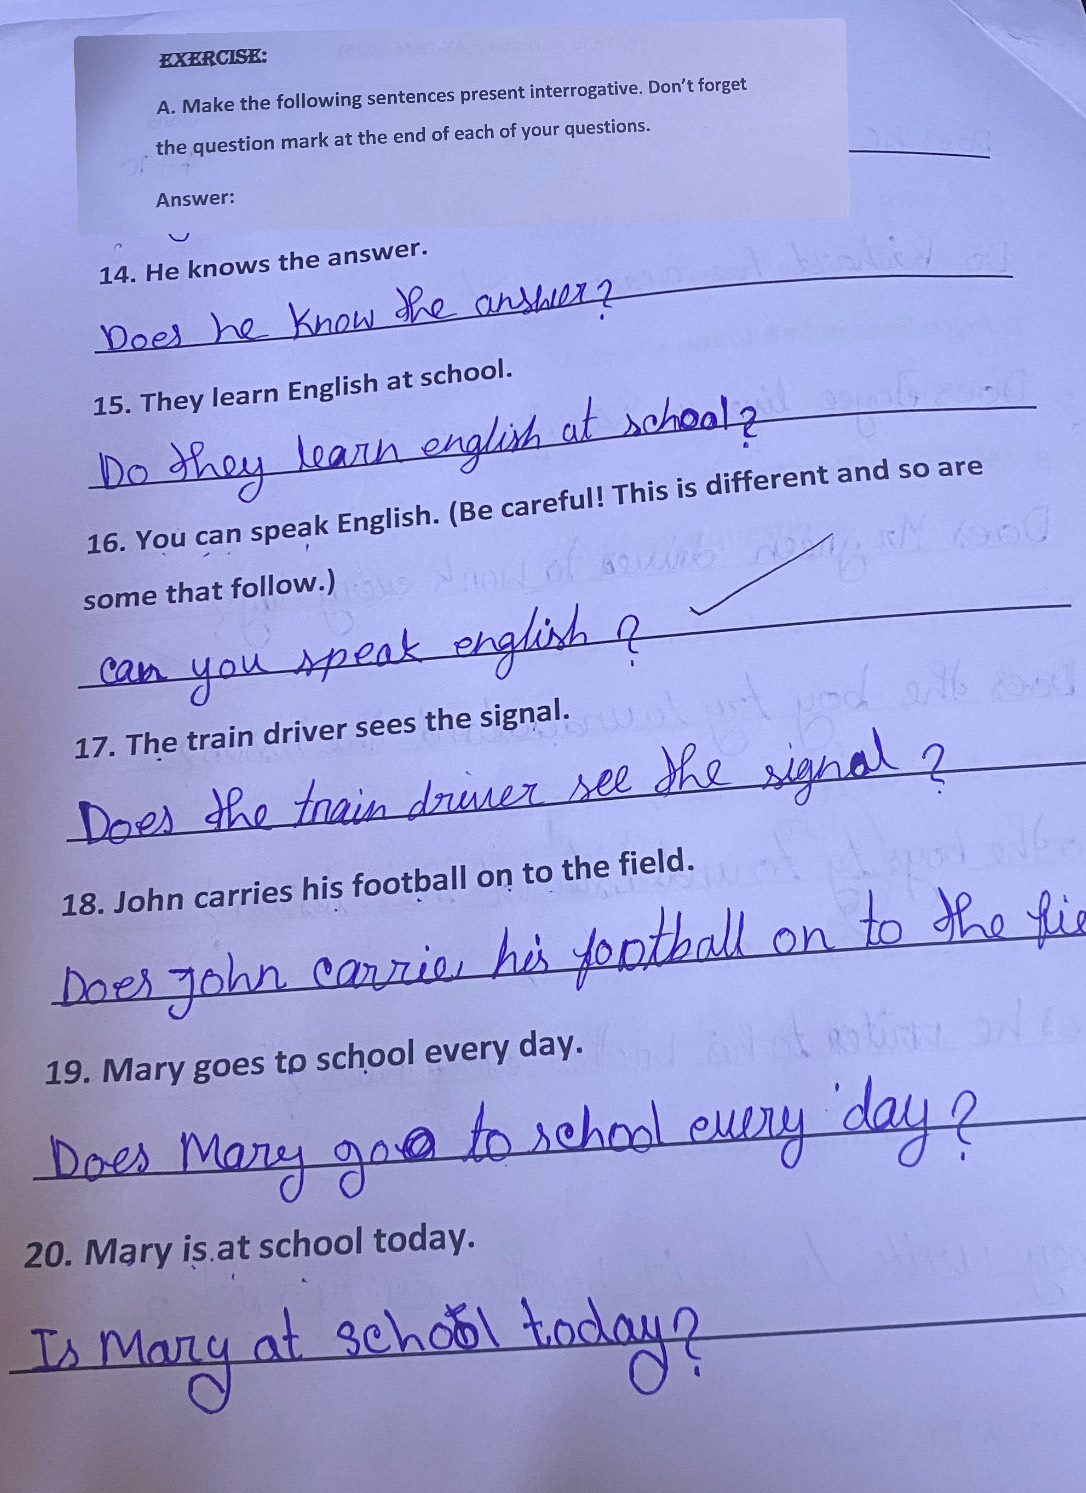 EXERCISE:
A. Make the following sentences present interrogative. Don't forget
the question mark at the end of each of your questions.
Answer:
14. He knows the answer.
Does he know the answer?
15. They learn English at school.
Do they learn english at school?
16. You can speak English. (Be careful! This is different and so are
some that follow.)
can you speak english?
17. The train driver sees the signal.
Does the train driver see the signal?
18. John carries his football on to the field.
Does john carries his football on to the fie
19. Mary goes to school every day.
Does Mary go to school every day?
20. Mary is at school today.
Is Mary at school today?